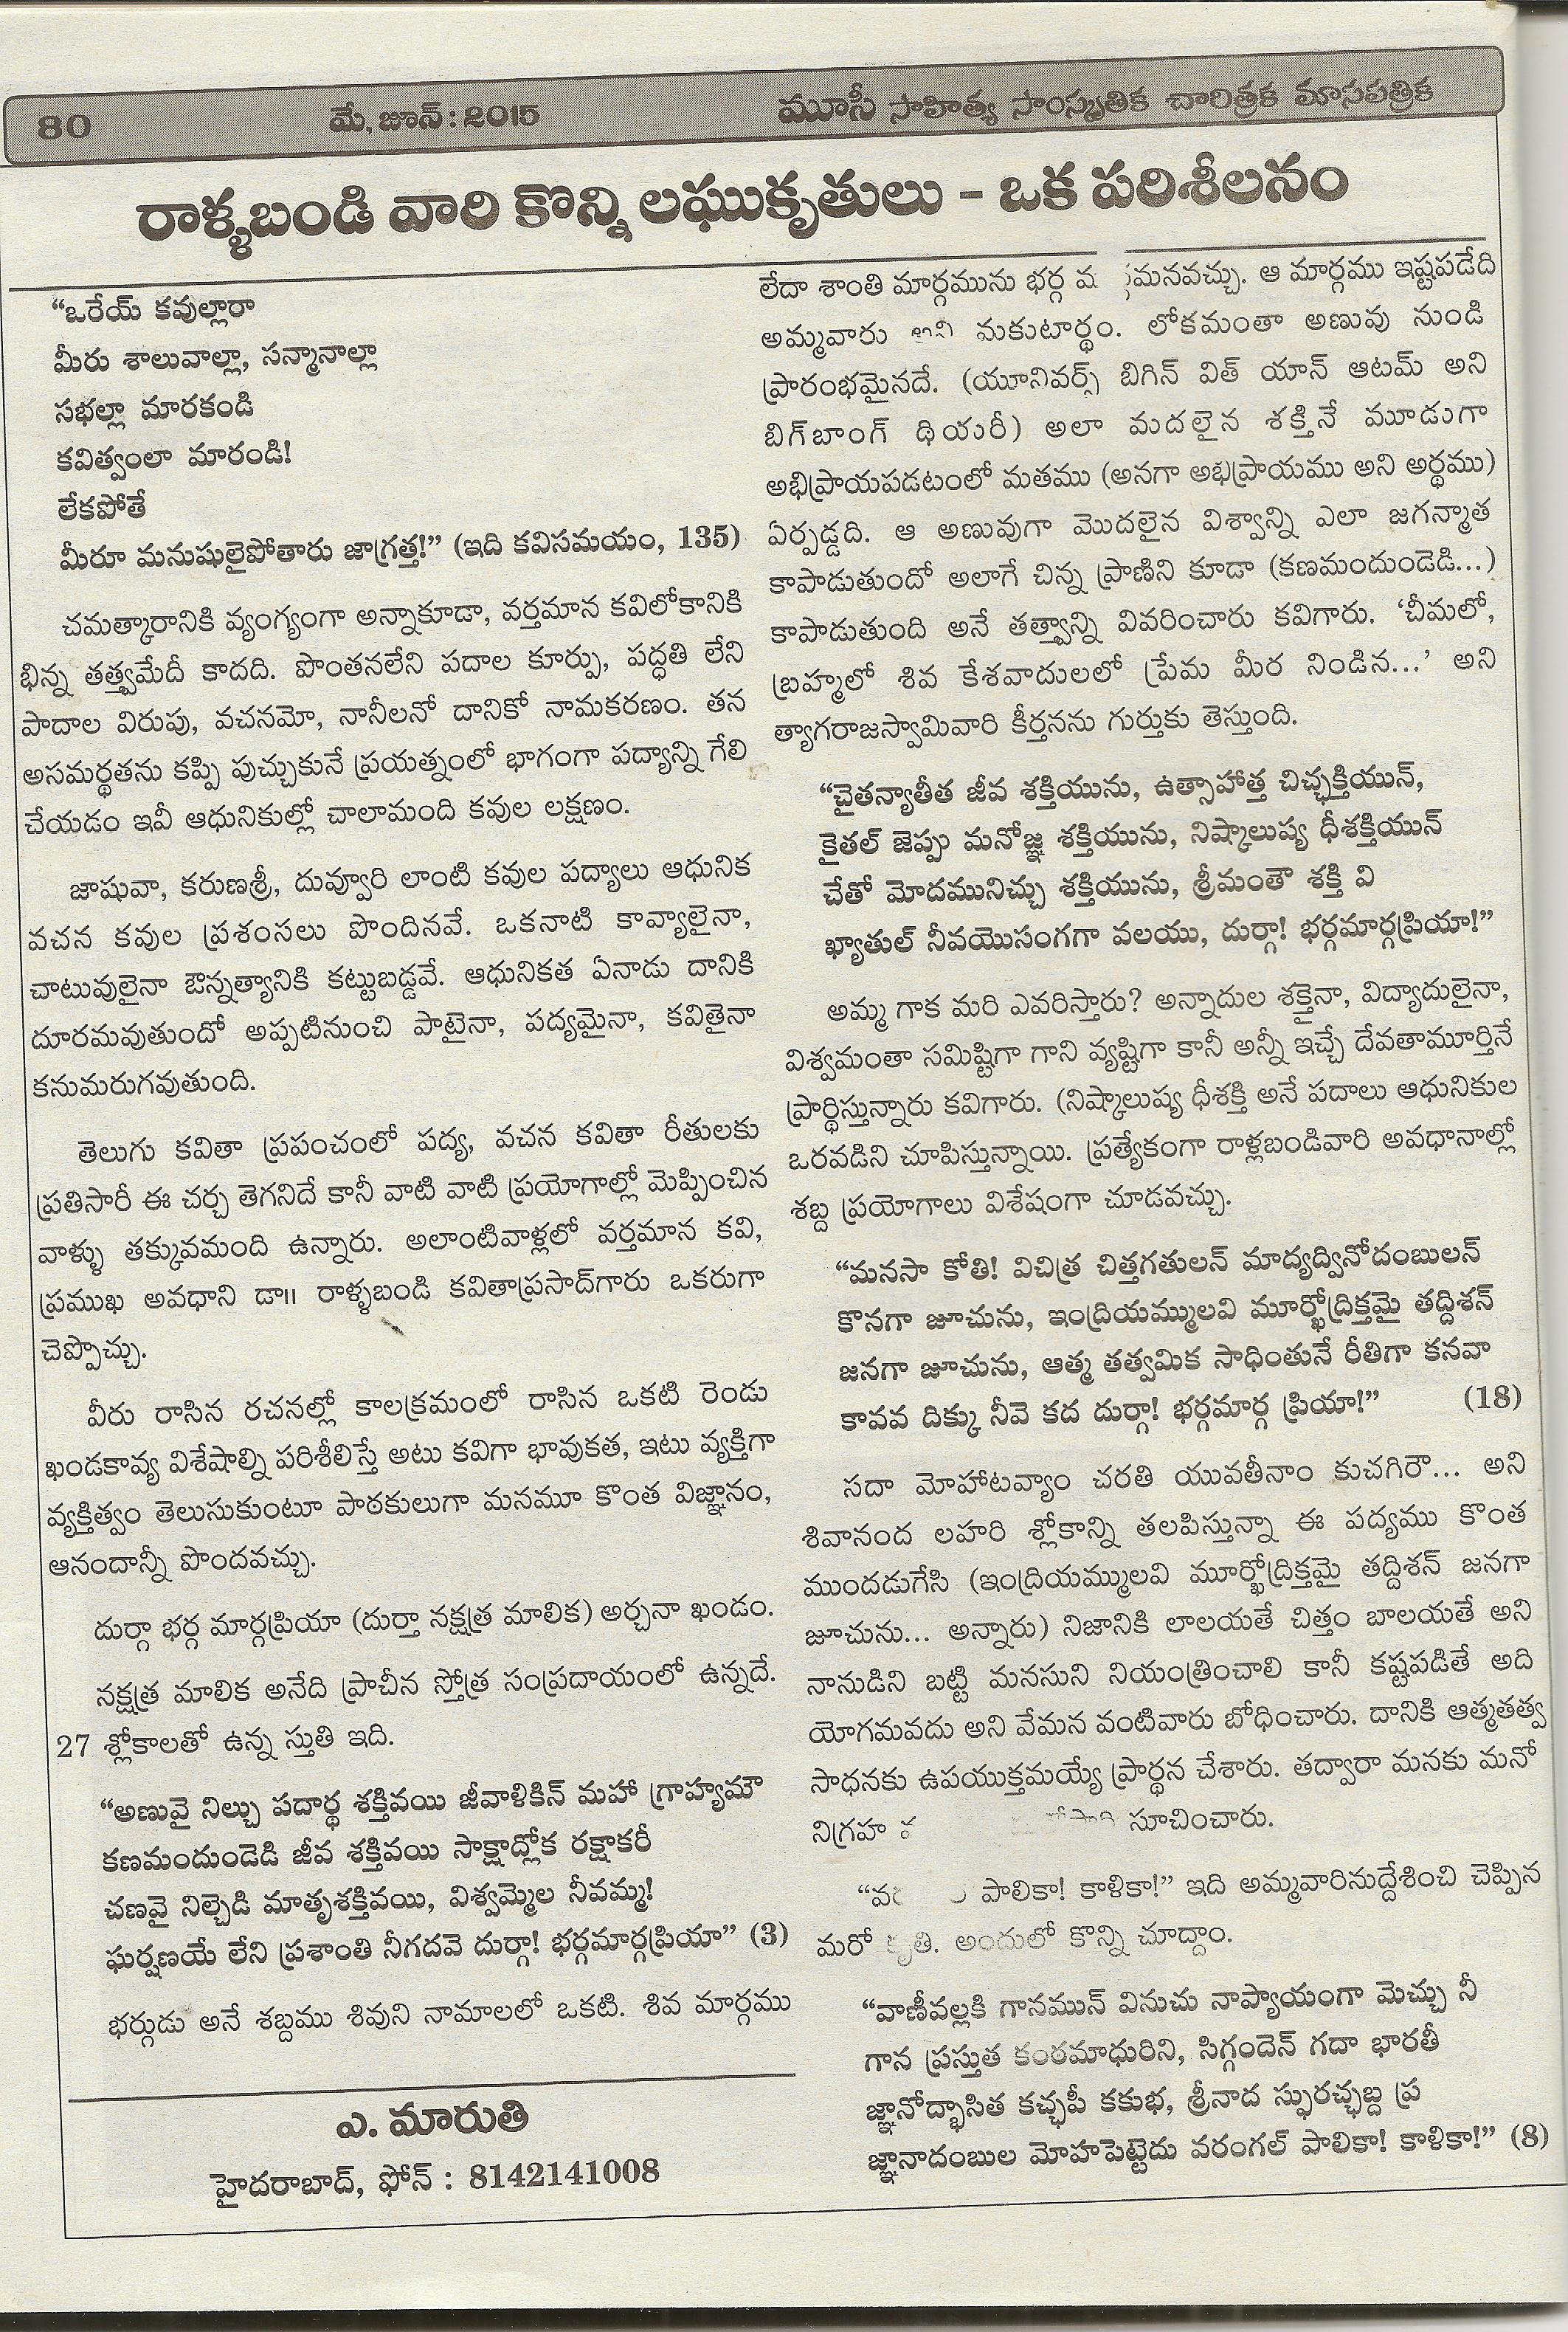 80 మే, జూన్ : 2015 మూసీ సాహిత్య సాంస్కృతిక చారిత్రక మాసపత్రిక
రాళ్ళబండి వారి కొన్ని లఘుకృతులు - ఒక పరిశీలనం
“ఒరేయ్ కవుల్లారా
మీరు శాలువాల్లా, సన్మానాల్లా
సభల్లా మారకండి
కవిత్వంలా మారండి!
లేకపోతే
మీరూ మనుషులైపోతారు జాగ్రత్త!” (ఇది కవిసమయం, 135)
చమత్కారానికి వ్యంగ్యంగా అన్నాకూడా, వర్తమాన కవిలోకానికి
భిన్న తత్త్వమేదీ కాదది. పొంతనలేని పదాల కూర్పు, పద్ధతి లేని
పాదాల విరుపు, వచనమో, నానీలనో దానికో నామకరణం. తన
అసమర్థతను కప్పి పుచ్చుకునే ప్రయత్నంలో భాగంగా పద్యాన్ని గేలి
చేయడం ఇవీ ఆధునికుల్లో చాలామంది కవుల లక్షణం.
జాషువా, కరుణశ్రీ, దువ్వూరి లాంటి కవుల పద్యాలు ఆధునిక
వచన కవుల ప్రశంసలు పొందినవే. ఒకనాటి కావ్యాలైనా,
చాటువులైనా ఔన్నత్యానికి కట్టుబడ్డవే. ఆధునికత ఏనాడు దానికి
దూరమవుతుందో అప్పటినుంచి పాటైనా, పద్యమైనా, కవితైనా
కనుమరుగవుతుంది.
తెలుగు కవితా ప్రపంచంలో పద్య, వచన కవితా రీతులకు
ప్రతిసారీ ఈ చర్చ తెగనిదే కానీ వాటి వాటి ప్రయోగాల్లో మెప్పించిన
వాళ్ళు తక్కువమంది ఉన్నారు. అలాంటివాళ్లలో వర్తమాన కవి,
ప్రముఖ అవధాని డా॥ రాళ్ళబండి కవితాప్రసాద్‌గారు ఒకరుగా
చెప్పొచ్చు.
వీరు రాసిన రచనల్లో కాలక్రమంలో రాసిన ఒకటి రెండు
ఖండకావ్య విశేషాల్ని పరిశీలిస్తే అటు కవిగా భావుకత, ఇటు వ్యక్తిగా
వ్యక్తిత్వం తెలుసుకుంటూ పాఠకులుగా మనమూ కొంత విజ్ఞానం,
ఆనందాన్నీ పొందవచ్చు.
దుర్గా భర్గ మార్గప్రియా (దుర్గా నక్షత్ర మాలిక) అర్చనా ఖండం.
నక్షత్ర మాలిక అనేది ప్రాచీన స్తోత్ర సంప్రదాయంలో ఉన్నదే.
27 శ్లోకాలతో ఉన్న స్తుతి ఇది.
“అణువై నిల్చు పదార్థ శక్తివయి జీవాళికిన్ మహా గ్రాహ్యమౌ
కణమందుండెడి జీవ శక్తివయి సాక్షాద్లోక రక్షాకరీ
చణవై నిల్చెడి మాతృశక్తివయి, విశ్వమ్మెల నీవమ్మ!
ఘర్షణయే లేని ప్రశాంతి నీగదవె దుర్గా! భర్గమార్గప్రియా” (3)
భర్గుడు అనే శబ్దము శివుని నామాలలో ఒకటి. శివ మార్గము
ఎ. మారుతి
హైదరాబాద్, ఫోన్ : 8142141008
లేదా శాంతి మార్గమును భర్గ ఆ మార్గము ఇష్టపడేది
అమ్మవారు అని మకుటార్థం. లోకమంతా అణువు నుండి
ప్రారంభమైనదే. (యూనివర్స్ బిగిన్ విత్ యాన్ ఆటమ్ అని
బిగ్‌బాంగ్ థియరీ) అలా మదలైన శక్తినే మూడుగా
అభిప్రాయపడటంలో మతము (అనగా అభిప్రాయము అని అర్థము)
ఏర్పడ్డది. ఆ అణువుగా మొదలైన విశ్వాన్ని ఎలా జగన్మాత
కాపాడుతుందో అలాగే చిన్న ప్రాణిని కూడా (కణమందుండెడి...)
కాపాడుతుంది అనే తత్త్వాన్ని వివరించారు కవిగారు. ‘చీమలో,
బ్రహ్మలో శివ కేశవాదులలో ప్రేమ మీర నిండిన...’ అని
త్యాగరాజస్వామివారి కీర్తనను గుర్తుకు తెస్తుంది.
“చైతన్యాతీత జీవ శక్తియును, ఉత్సాహాత్త చిచ్ఛక్తియున్,
కైతల్ జెప్పు మనోజ్ఞ శక్తియును, నిష్కాలుష్య ధీశక్తియున్
చేతో మోదమునిచ్చు శక్తియును, శ్రీమంతౌ శక్తి వి
ఖ్యాతుల్ నీవయొసంగగా వలయు, దుర్గా! భర్గమార్గప్రియా!”
అమ్మ గాక మరి ఎవరిస్తారు? అన్నాదుల శక్తైనా, విద్యాదులైనా,
విశ్వమంతా సమిష్టిగా గాని వ్యష్టిగా కానీ అన్నీ ఇచ్చే దేవతామూర్తినే
ప్రార్థిస్తున్నారు కవిగారు. (నిష్కాలుష్య ధీశక్తి అనే పదాలు ఆధునికుల
ఒరవడిని చూపిస్తున్నాయి. ప్రత్యేకంగా రాళ్లబండివారి అవధానాల్లో
శబ్ద ప్రయోగాలు విశేషంగా చూడవచ్చు.
“మనసా కోతి! విచిత్ర చిత్తగతులన్ మాద్యద్వినోదంబులన్
కొనగా జూచును, ఇంద్రియమ్ములవి మూర్ఖోద్రిక్తమై తద్దిశన్
జనగా జూచును, ఆత్మ తత్వమిక సాధింతునే రీతిగా కనవా
కావవ దిక్కు నీవె కద దుర్గా! భర్గమార్గ ప్రియా!” (18)
సదా మోహాటవ్యాం చరతి యువతీనాం కుచగిరౌ... అని
శివానంద లహరి శ్లోకాన్ని తలపిస్తున్నా ఈ పద్యము కొంత
ముందడుగేసి (ఇంద్రియమ్ములవి మూర్ఖోద్రిక్తమై తద్దిశన్ జనగా
జూచును... అన్నారు) నిజానికి లాలయతే చిత్తం బాలయతే అని
నానుడిని బట్టి మనసుని నియంత్రించాలి కానీ కష్టపడితే అది
యోగమవదు అని వేమన వంటివారు బోధించారు. దానికి ఆత్మతత్వ
సాధనకు ఉపయుక్తమయ్యే ప్రార్థన చేశారు. తద్వారా మనకు మనో
నిగ్రహ సూచించారు.
పాలికా! కాళికా!” ఇది అమ్మవారినుద్దేశించి చెప్పిన
మరో కృతి. అందులో కొన్ని చూద్దాం.
“వాణీవల్లకి గానమున్ వినుచు నాప్యాయంగా మెచ్చు నీ
గాన ప్రస్తుత కంఠమాధురిని, సిగ్గందెన్ గదా భారతీ
జ్ఞానోద్భాసిత కచ్ఛపీ కకుభ, శ్రీనాద స్ఫురచ్ఛబ్ద ప్ర
జ్ఞానాదంబుల మోహపెట్టెదు వరంగల్ పాలికా! కాళికా!” (8)